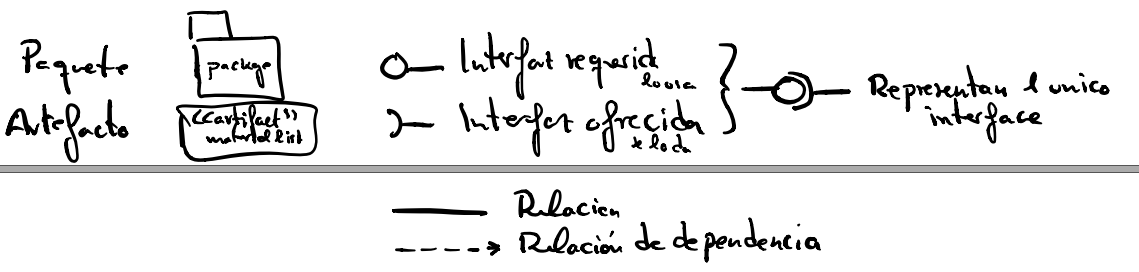 Paquete
package
Artefacto
<<artifact>>
material list
Interfaz requerida
lo usa
Interfaz ofrecida
se lo da
Representan 1 unico
interface
Relacion
Relación de dependencia